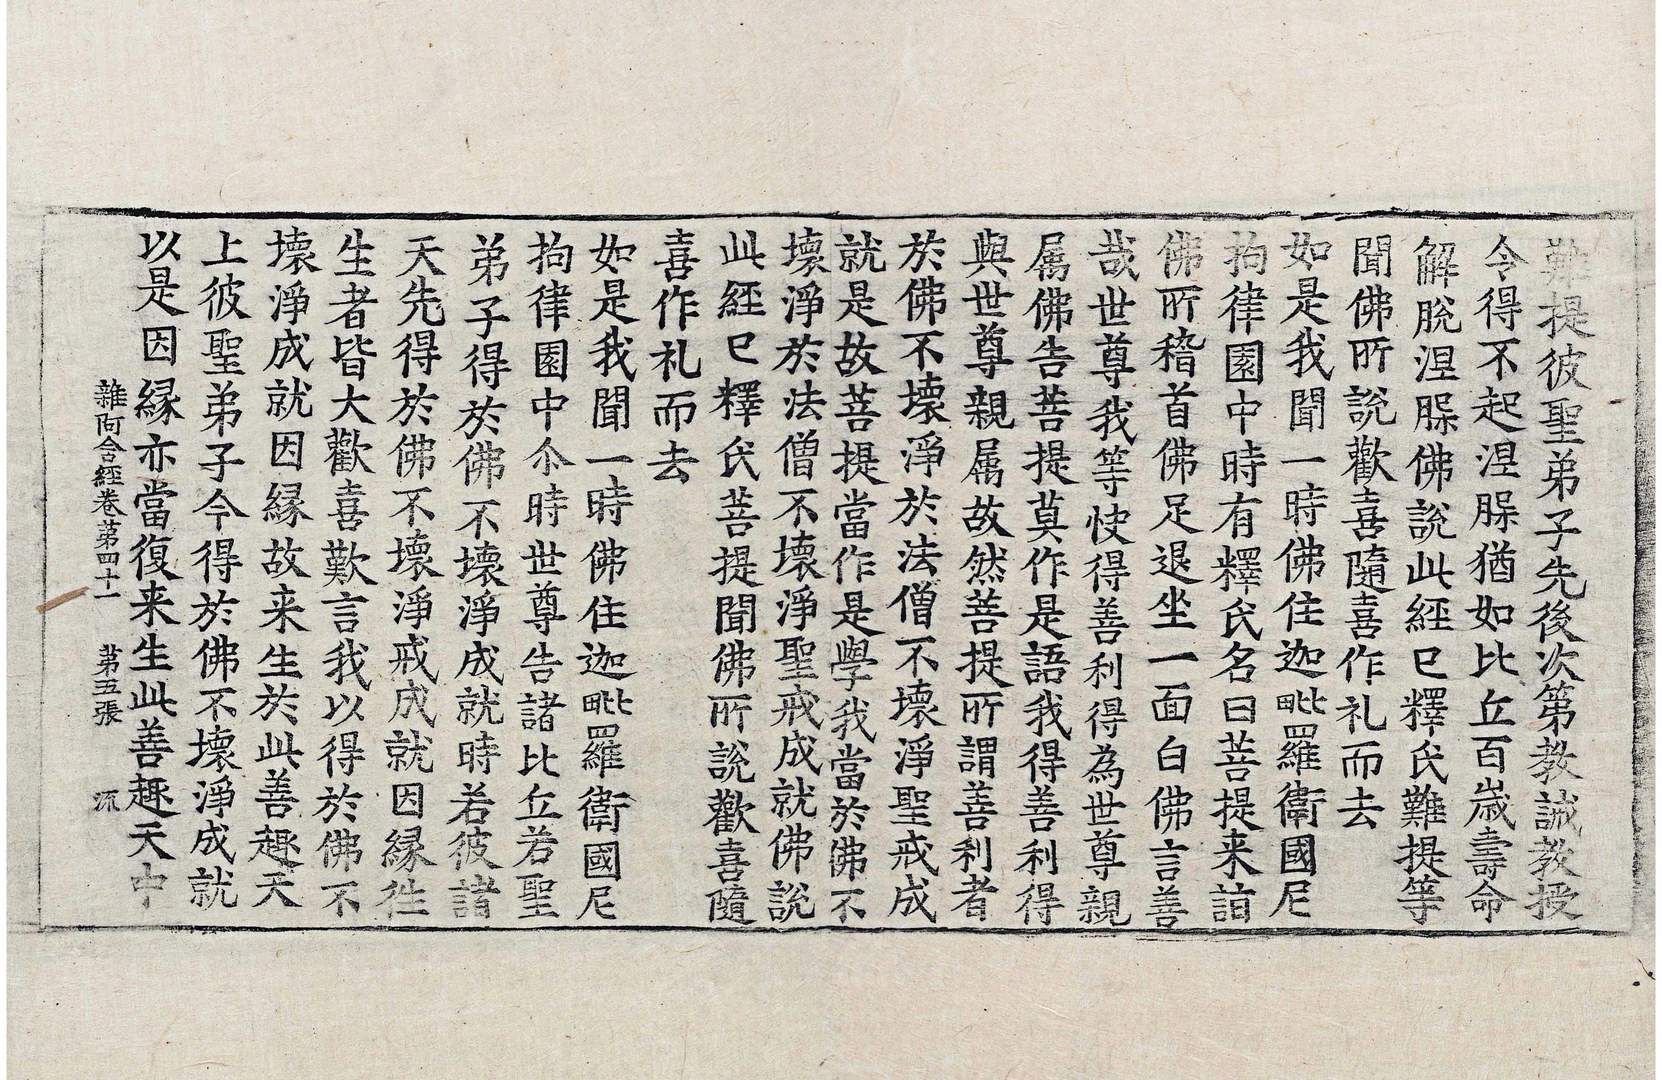 難提彼聖弟子先後次第教誡教授
令得不起涅脲猶如比丘百歲壽命
解脫涅脲佛說此經已釋氏難提等
聞佛所說歡喜隨喜作礼而去
如是我聞一時佛住迦毗羅衛國尼
拘律園中時有釋氏名曰菩提来詣
佛所稽首佛足退坐一面白佛言善
哉世尊我等快得善利得為世尊親
属佛告菩提莫作是語我得善利得
與世尊親属故然菩提所謂善利者
於佛不壞淨於法僧不壞淨聖戒成
就是故菩提當作是學我當於佛不
壞淨於法僧不壞淨聖戒成就佛說
此經已釋氏菩提聞佛所說歡喜隨
喜作礼而去
如是我聞一時佛住迦毗羅衛國尼
拘律園中尒時世尊告諸比丘若聖
弟子得於佛不壞淨成就時若彼諸
天先得於佛不壞淨戒成就因緣徃
生者皆大歡喜歎言我以得於佛不
壞淨成就因緣故来生於此善趣天
上彼聖弟子今得於佛不壞淨成就
以是因緣亦當復来生此善趣天中
雜阿含經卷苐四十一 苐五張 流